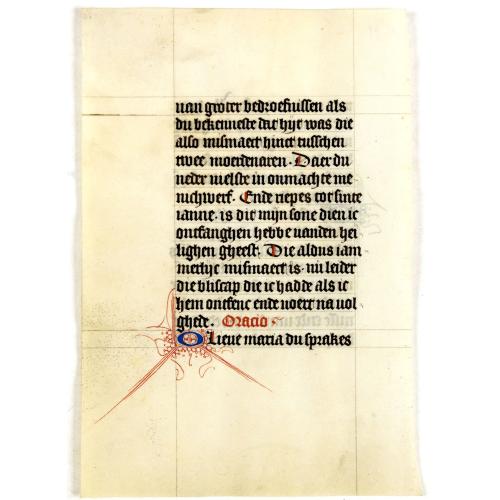 uan groter bedroefnissen als
du bekenneste dat hyt was die
also mismaect hinct tusschen
twee moerdenaren. Daer du
neder vielste in onmachte me
nichwerf. Ende riepes tot sinte
ianne. is dit mijn sone dien ic
ontfanghen hebbe vanden hei
lighen gheest. Die aldus iam
merlyc mismaect is. nu leider
die bliscap die ic hadde als ic
hem ontfenc ende voert na vol
ghede. Oracio.
O lieue maria du sprakes